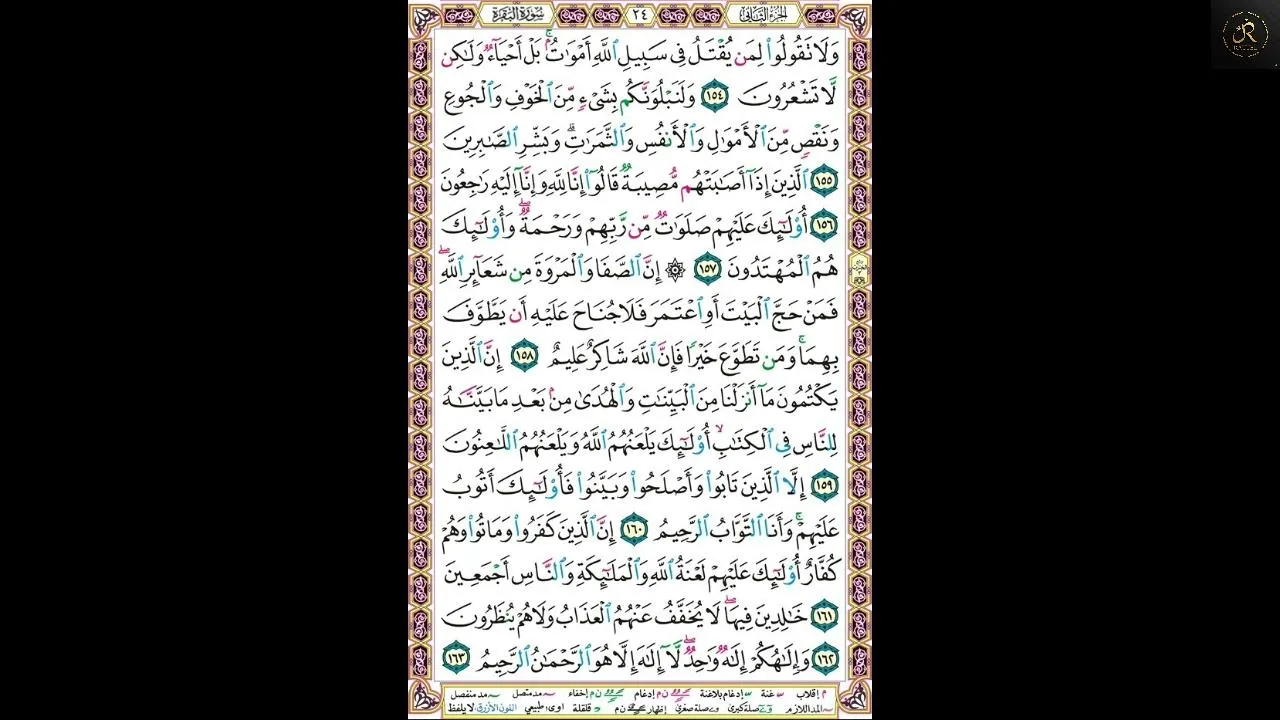 الجزء الثاني ٢٤ سورة البقرة
وَلَا تَقُولُوا۟ لِمَن يُقْتَلُ فِى سَبِيلِ ٱللَّهِ أَمْوَٰتٌۢ ۚ بَلْ أَحْيَآءٌۭ وَلَـٰكِن
لَّا تَشْعُرُونَ ١٥٤ وَلَنَبْلُوَنَّكُم بِشَىْءٍۢ مِّنَ ٱلْخَوْفِ وَٱلْجُوعِ
وَنَقْصٍۢ مِّنَ ٱلْأَمْوَٰلِ وَٱلْأَنفُسِ وَٱلثَّمَرَٰتِ ۗ وَبَشِّرِ ٱلصَّـٰبِرِينَ
١٥٥ ٱلَّذِينَ إِذَآ أَصَـٰبَتْهُم مُّصِيبَةٌۭ قَالُوٓا۟ إِنَّا لِلَّهِ وَإِنَّآ إِلَيْهِ رَٰجِعُونَ
١٥٦ أُو۟لَـٰٓئِكَ عَلَيْهِمْ صَلَوَٰتٌۭ مِّن رَّبِّهِمْ وَرَحْمَةٌۭ ۖ وَأُو۟لَـٰٓئِكَ
هُمُ ٱلْمُهْتَدُونَ ١٥٧ ۞ إِنَّ ٱلصَّفَا وَٱلْمَرْوَةَ مِن شَعَآئِرِ ٱللَّهِ ۖ
فَمَنْ حَجَّ ٱلْبَيْتَ أَوِ ٱعْتَمَرَ فَلَا جُنَاحَ عَلَيْهِ أَن يَطَّوَّفَ
بِهِمَا ۚ وَمَن تَطَوَّعَ خَيْرًۭا فَإِنَّ ٱللَّهَ شَاكِرٌ عَلِيمٌ ١٥٨ إِنَّ ٱلَّذِينَ
يَكْتُمُونَ مَآ أَنزَلْنَا مِنَ ٱلْبَيِّنَـٰتِ وَٱلْهُدَىٰ مِنۢ بَعْدِ مَا بَيَّنَّـٰهُ
لِلنَّاسِ فِى ٱلْكِتَـٰبِ ۙ أُو۟لَـٰٓئِكَ يَلْعَنُهُمُ ٱللَّهُ وَيَلْعَنُهُمُ ٱللَّـٰعِنُونَ
١٥٩ إِلَّا ٱلَّذِينَ تَابُوا۟ وَأَصْلَحُوا۟ وَبَيَّنُوا۟ فَأُو۟لَـٰٓئِكَ أَتُوبُ
عَلَيْهِمْ ۚ وَأَنَا ٱلتَّوَّابُ ٱلرَّحِيمُ ١٦٠ إِنَّ ٱلَّذِينَ كَفَرُوا۟ وَمَاتُوا۟ وَهُمْ
كُفَّارٌ أُو۟لَـٰٓئِكَ عَلَيْهِمْ لَعْنَةُ ٱللَّهِ وَٱلْمَلَـٰٓئِكَةِ وَٱلنَّاسِ أَجْمَعِينَ
١٦١ خَـٰلِدِينَ فِيهَا ۖ لَا يُخَفَّفُ عَنْهُمُ ٱلْعَذَابُ وَلَا هُمْ يُنظَرُونَ
١٦٢ وَإِلَـٰهُكُمْ إِلَـٰهٌۭ وَٰحِدٌۭ ۖ لَّآ إِلَـٰهَ إِلَّا هُوَ ٱلرَّحْمَـٰنُ ٱلرَّحِيمُ ١٦٣
م إقلاب غنة إدغام بلاغنة ن م إدغام ن م إخفاء مد متصل مد منفصل
المد اللازم صلة كبرى صلة صغرى إظهار ن م قلقلة اوى: طبيعي اللون الأزرق: لا يلفظ